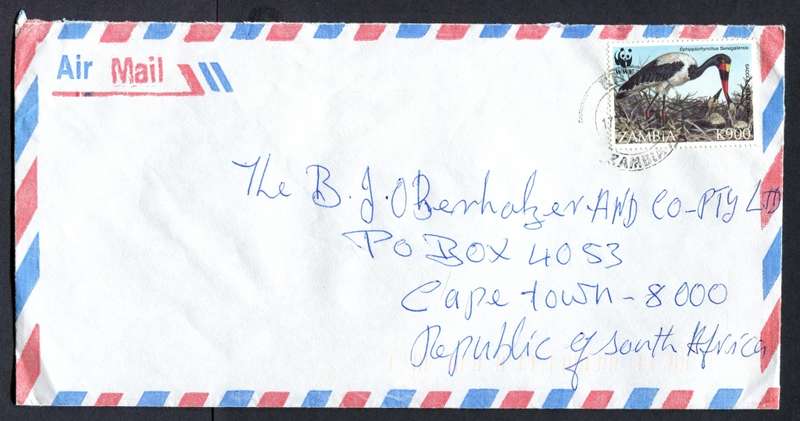 Air Mail
Ephippiorhynchus Senegalensis
WWF
ZAMBIA K900
ZAMBIA
The B. J. OBerhalzer AND CO-PTY LTD
PO BOX 4053
Cape town - 8000
Republic of south Africa